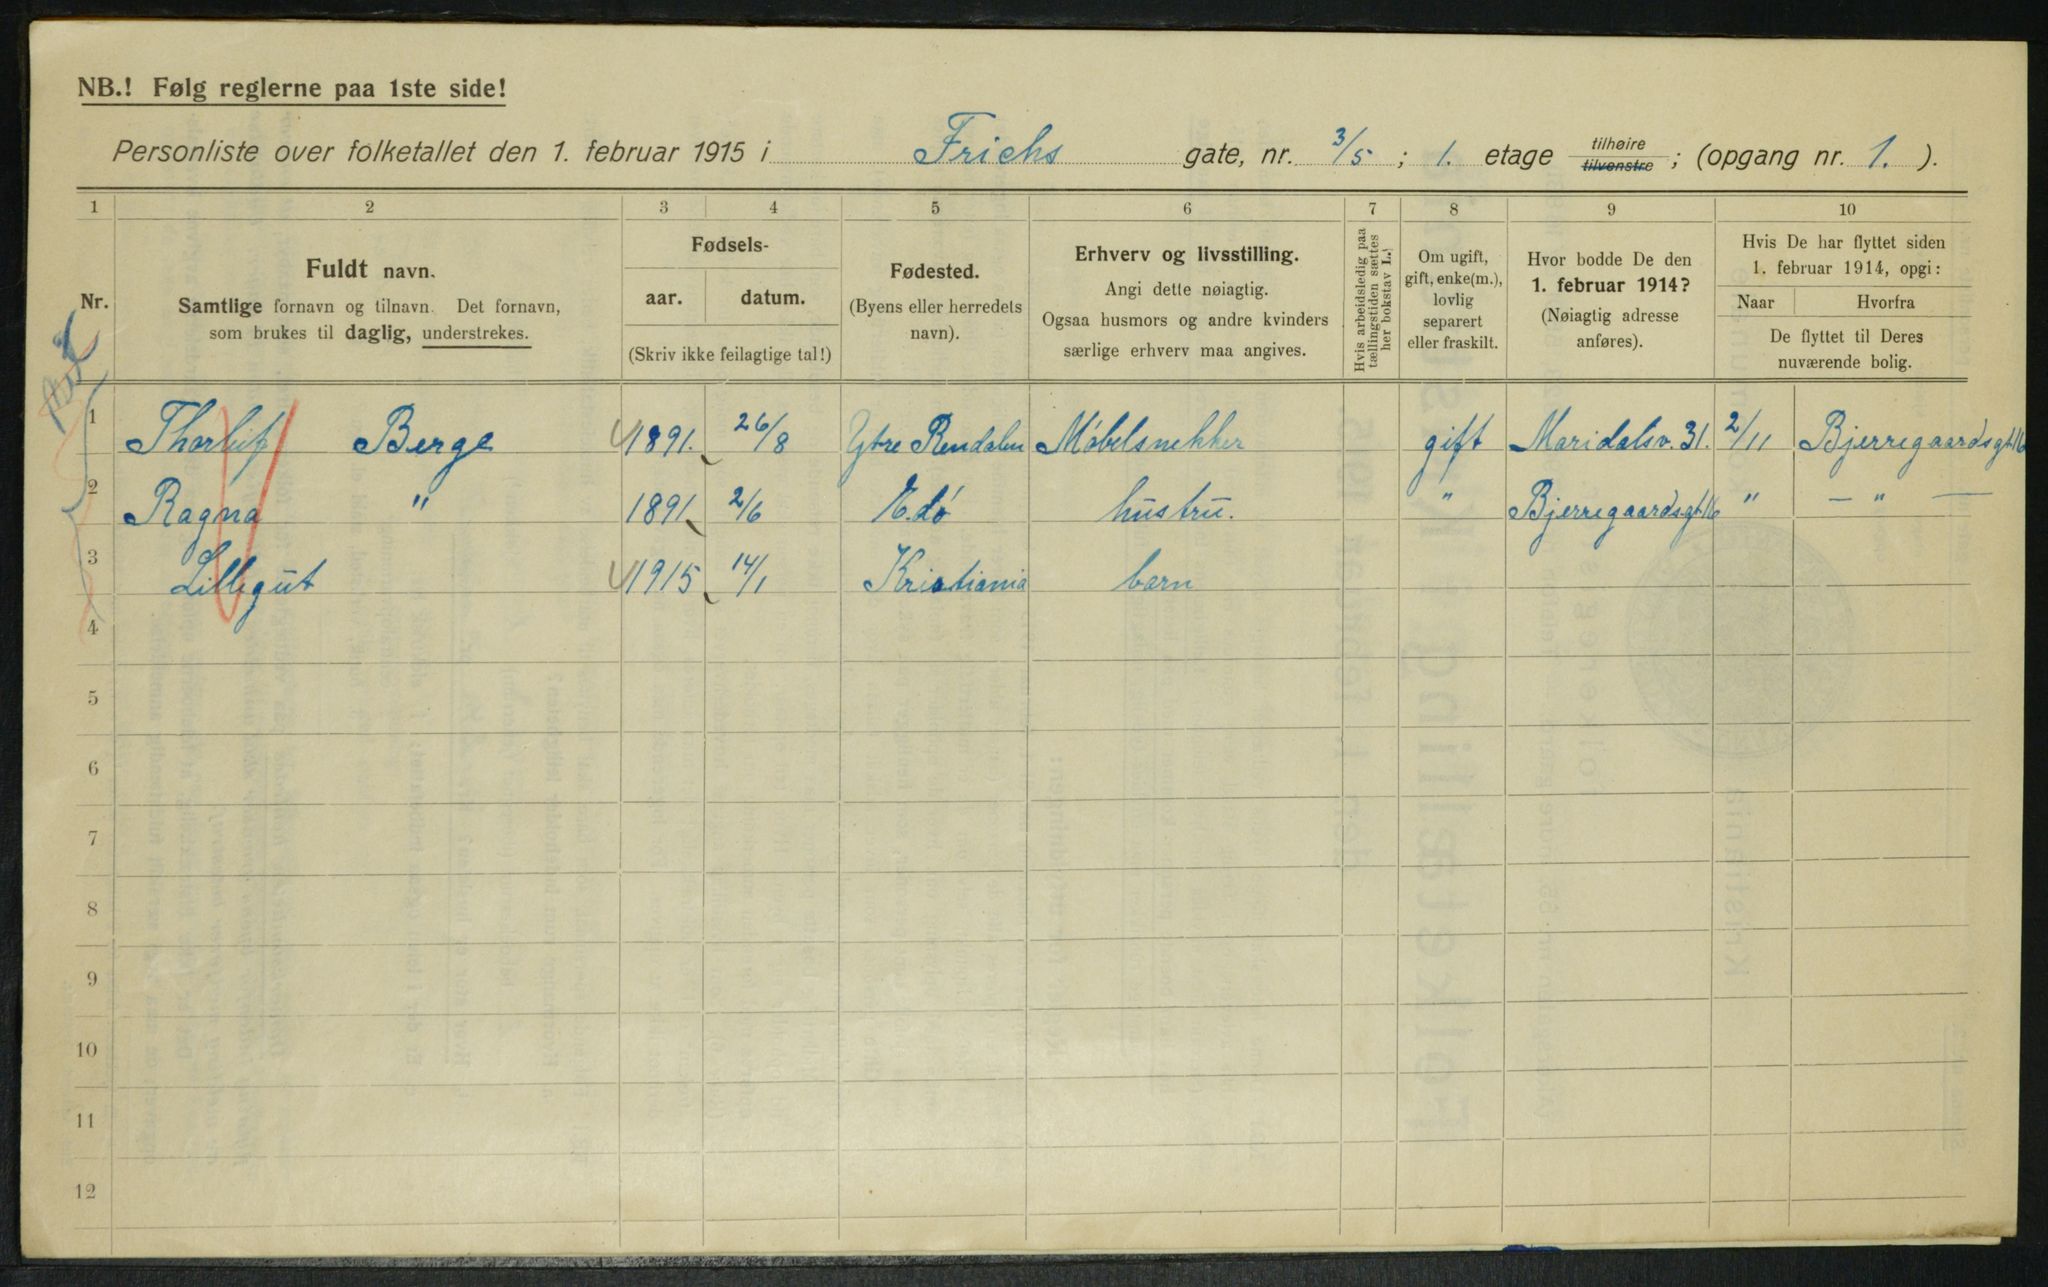 NB.! Følg reglerne paa 1ste side!
Personliste over folketallet den 1. februar 1915 i Frichs gate, nr. 3/5 ; 1. etage tilhøire tilvenstre ; (opgang nr. 1. ).
1 2 3 4 5 6 7 8 9 10
Nr.
Fuldt navn.
Samtlige fornavn og tilnavn. Det fornavn,
som brukes til daglig, understrekes.
Fødsels-
aar. datum.
(Skriv ikke feilagtige tal!)
Fødested.
(Byens eller herredets
navn).
Erhverv og livsstilling.
Angi dette nøiagtig.
Ogsaa husmors og andre kvinders
særlige erhverv maa angives.
Hvis arbeidsledig paa
tællingstiden sættes
her bokstav L.
Om ugift,
gift, enke(m.),
lovlig
separert
eller fraskilt.
Hvor bodde De den
1. februar 1914?
(Nøiagtig adresse
anføres).
Hvis De har flyttet siden
1. februar 1914, opgi:
Naar Hvorfra
De flyttet til Deres
nuværende bolig.
1 Thorleif Berge 1891. 26/8 Ytre Rendalen Møbelsnekker gift Maridalsv. 31. 2/11 Bjerregaardsgt 16
2 Ragna " 1891 2/6 hustru. " Bjerregaardsgt 16 " — " —
3 Lillegut 1915 14/1 Kristiania barn
4
5
6
7
8
9
10
11
12